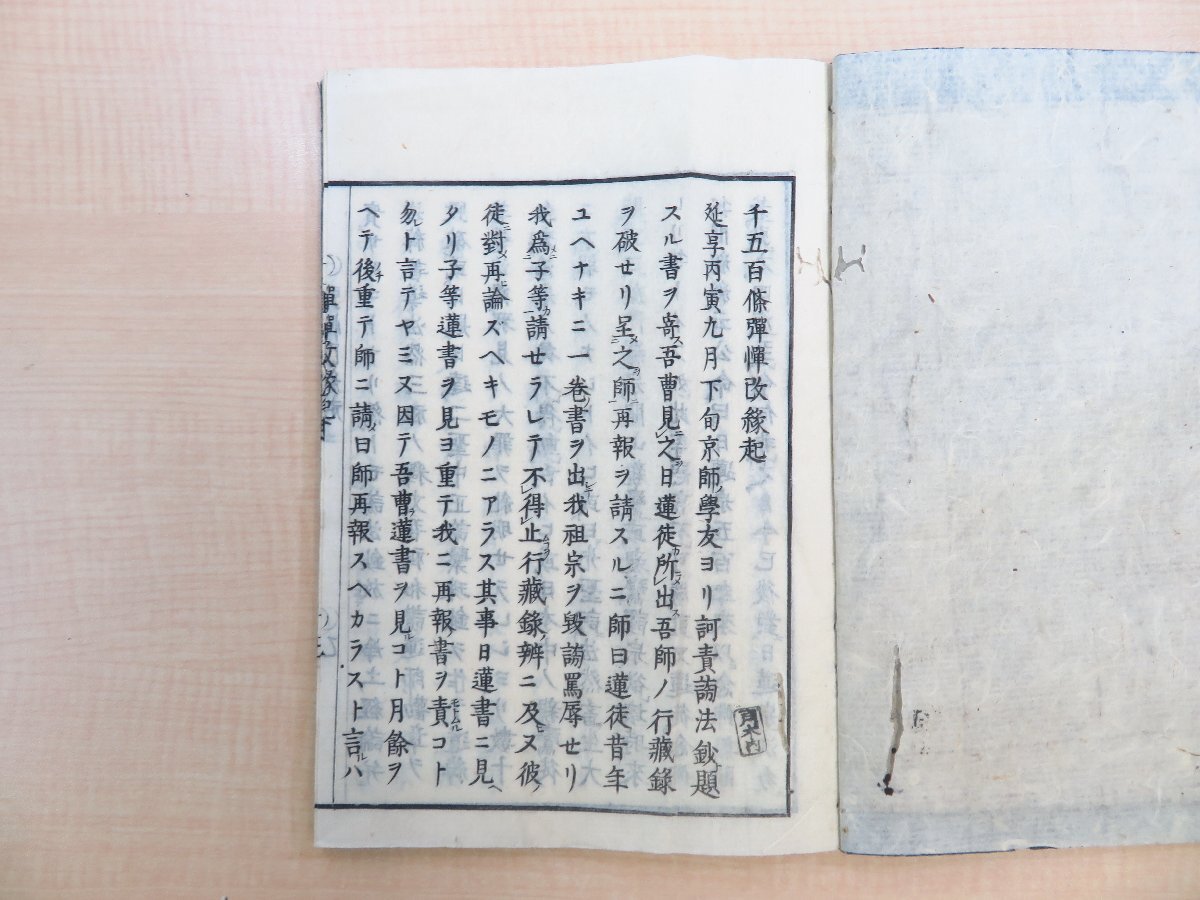 千五百條彈憚改緣起
延享丙寅九月下旬京師ノ學友ヨリ訶責謗法鈔ト題
スル書ヲ寄ス吾曹見之曰蓮徒所出吾師ノ行藏錄
ヲ破セリ呈之師再報ヲ請スルニ師曰蓮徒昔年
ユヘナキニ一卷ノ書ヲ出シ我祖宗ヲ毀謗罵辱セリ
我爲子等請セラレテ不得止行藏錄辨ニ及ヌ彼ノ
徒ニ對メ再ヒ論スヘキモノニアラス其事曰蓮書ニ見ヘ
タリ子等蓮書ヲ見ヨ重テ我ニ再報ノ書ヲ責ムルコト
勿レト言テヤミヌ因テ吾曹蓮書ヲ見ルコト月餘ヲ
ヘテ後チ重テ師ニ請メ曰師再報スヘカラスト言ルハ